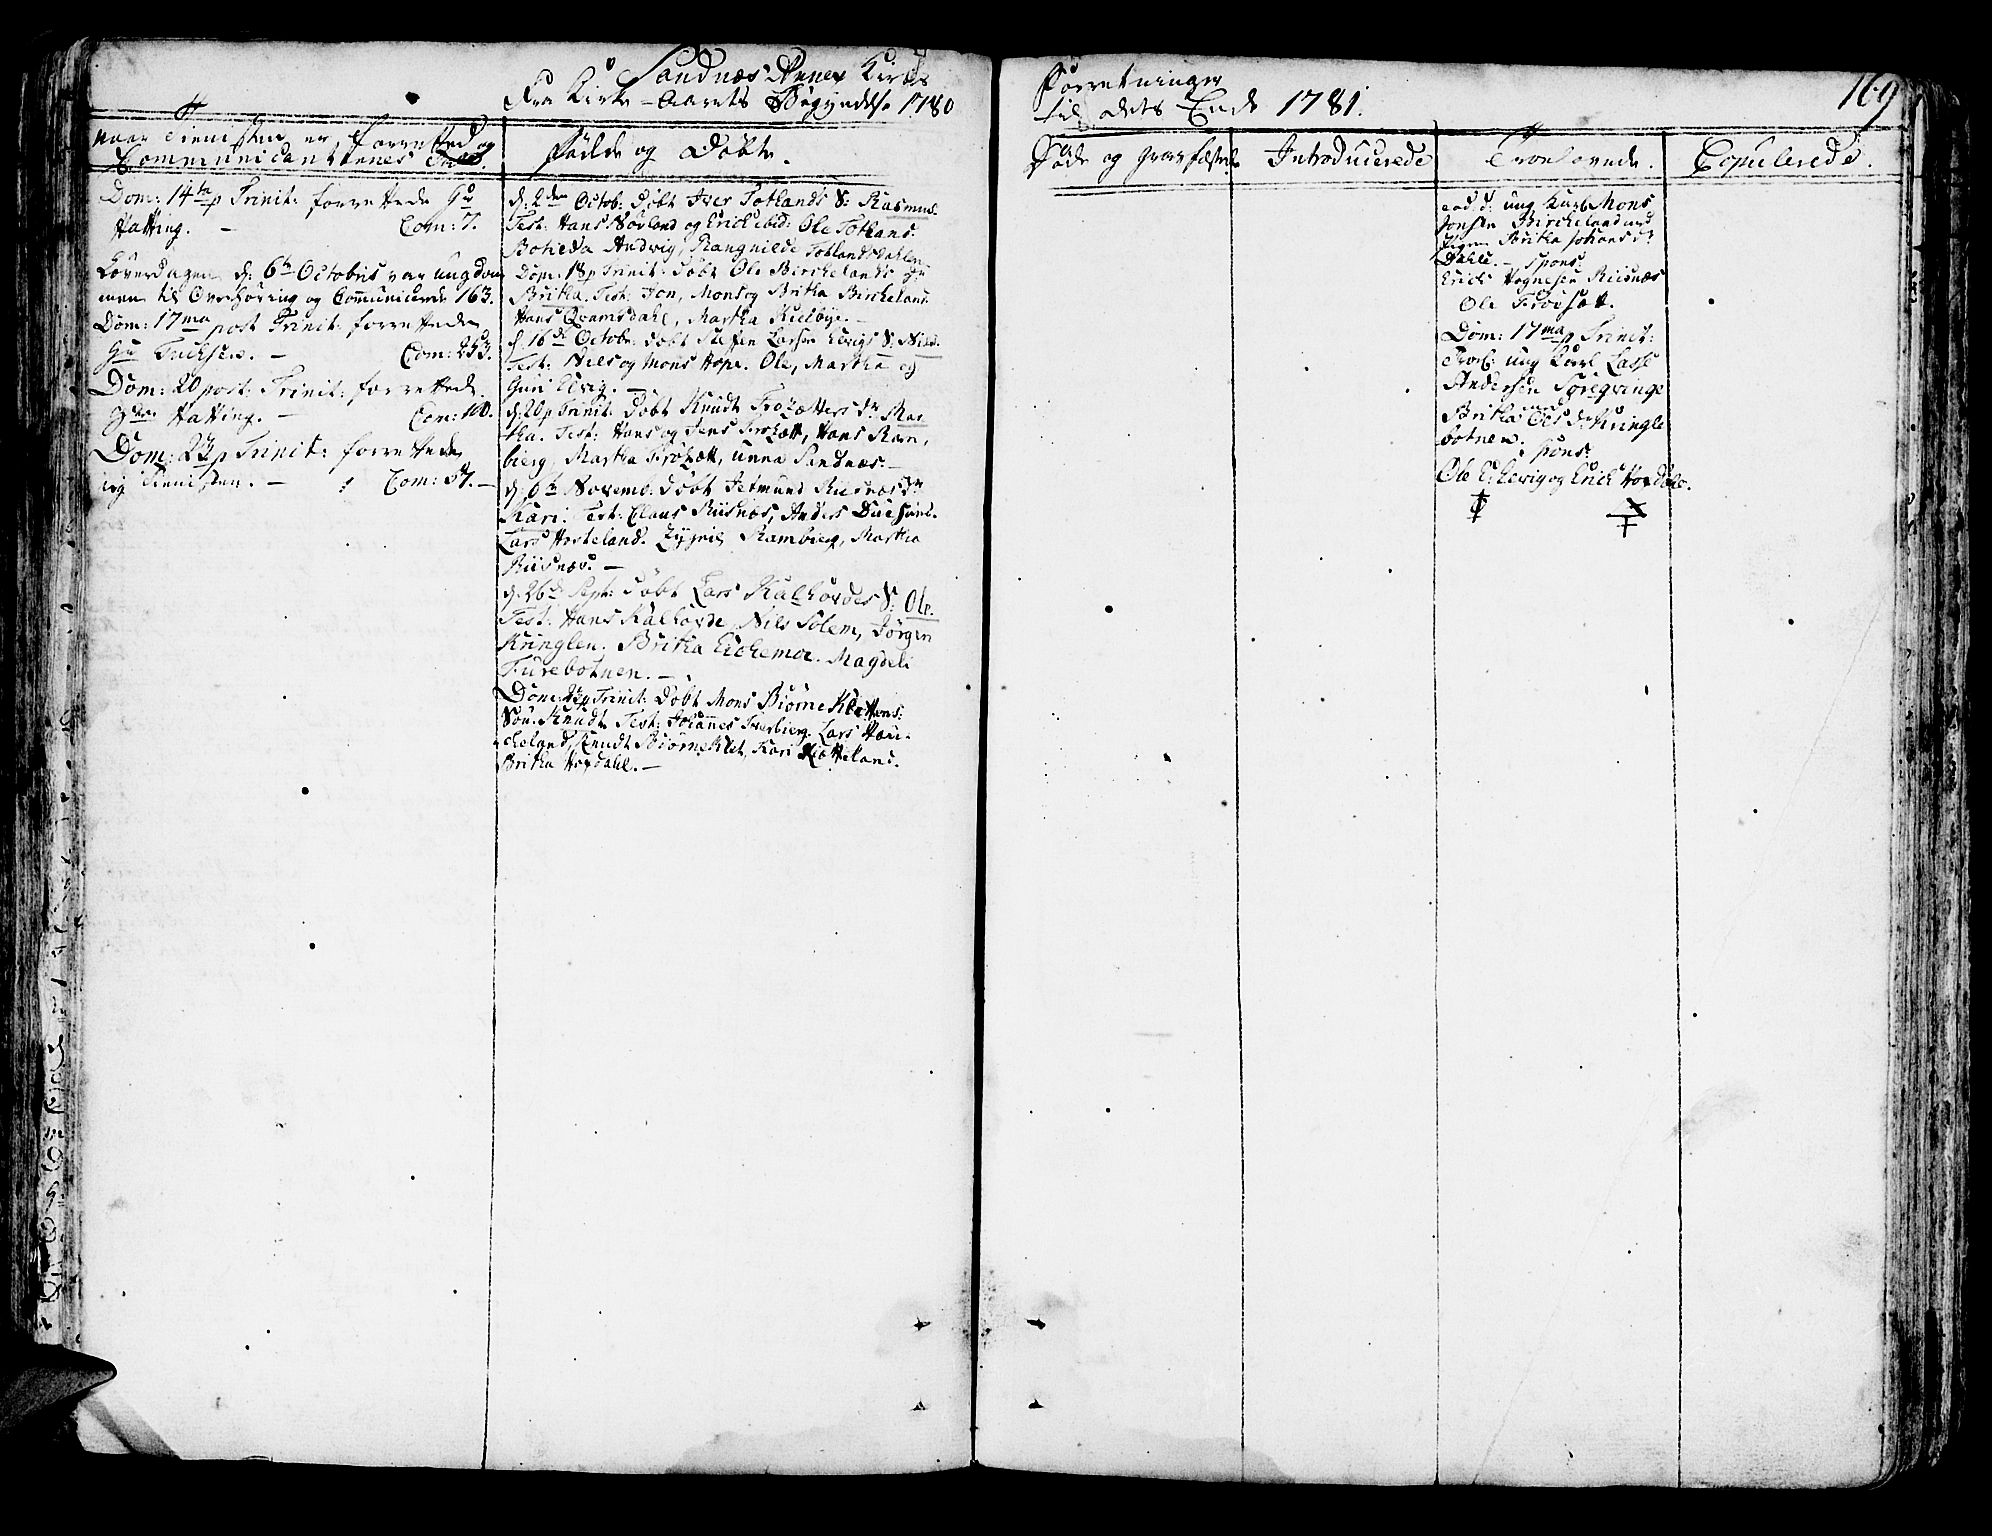 Sandnæs Annex Kirkes
Fra Kirke-Aarets Begyndelse 1780
Forretninger
til dets Ende 1781.
169
naar Tienesten er forretted og
Communicanternes Tall.
Fødde og Døbte.
Døde og Gravfæstede
Introducerede
Troelovede.
Copulerede.
Dom: 14te p Trinit: forrettede Hr
Hatting. - Com: 7.
Løverdagen d: 6te Octobris var ungdom
men til Overhøring og Communicerede 163.
Dom: 17ma post Trinit: forrettede
Hr Tuchsen. - Com: 253.
Dom: 20 post: Trinit: forrettede
Hatting. - Com: 110.
Dom: 22 p Trinit: forrettede
ieg Tienisten. - Com: 57. -
d: 2den Octob: døbt Iver Totlands S: Rasmus.
Test: Hans Norland og Erich ibid: Ole Totland.
Botilda Andvig, Rangnilde Totlandsdahlen
Dom: 18 p Trinit: døbt Ole Birchelands
Britha. Test: Jon, Mons og Britha Bircheland.
Hans Qvamsdahl, Martha Kielbye. -
d. 16de Octobr: døbt Steffen Larsen Evigs S: Nils.
Test: Niels og Mons Hope. Ole, Martha og
Guri Evig. -
d: 20 p Trinit: døbt Knudt Frosætters dr Mar
tha. Test: Hans og Jens Frosætt, Hans Ram,
bierg, Martha Frosætt, Unna Sandnæs. -
d: 6te Novemb: døbt Jetmund Riisnæs dr
Kari. Test: Claus Riisnæs, Anders Duesund.
Lars Hosteland. Zygni Rambierg, Martha
Riisnæs. -
d. 26de Sept: døbt Lars Kalhovdes S: Ole.
Test: Hans Kalhovde, Nils Solem, Jørgen
Kringlen. Britha Eichemoe. Magdeli
Furebotnen. -
Dom: 22 p Trinit: døbt Mons Biørneklettens
Søn. Knudt. Test: Johannes Iverbierg. Lars Hau-
cheland, Knudt Biørneklet, Kari Kletteland.
Britha Hopdahl. -
eod: d: ung Karl Mons
Jonsen Bircheland med
Pigen Britha Johans dr
Dahle. - Spons:
Erich Hognesen Riisnæs
Ole Frøysætt.
Dom: 17ma p Trinit:
Trol: ung Karl Lasse
Andersen Søreqvinge
med
Britha Ols dr Kringle
botnen.
spons:
Ole E: Evig og Erich Hopdahl.